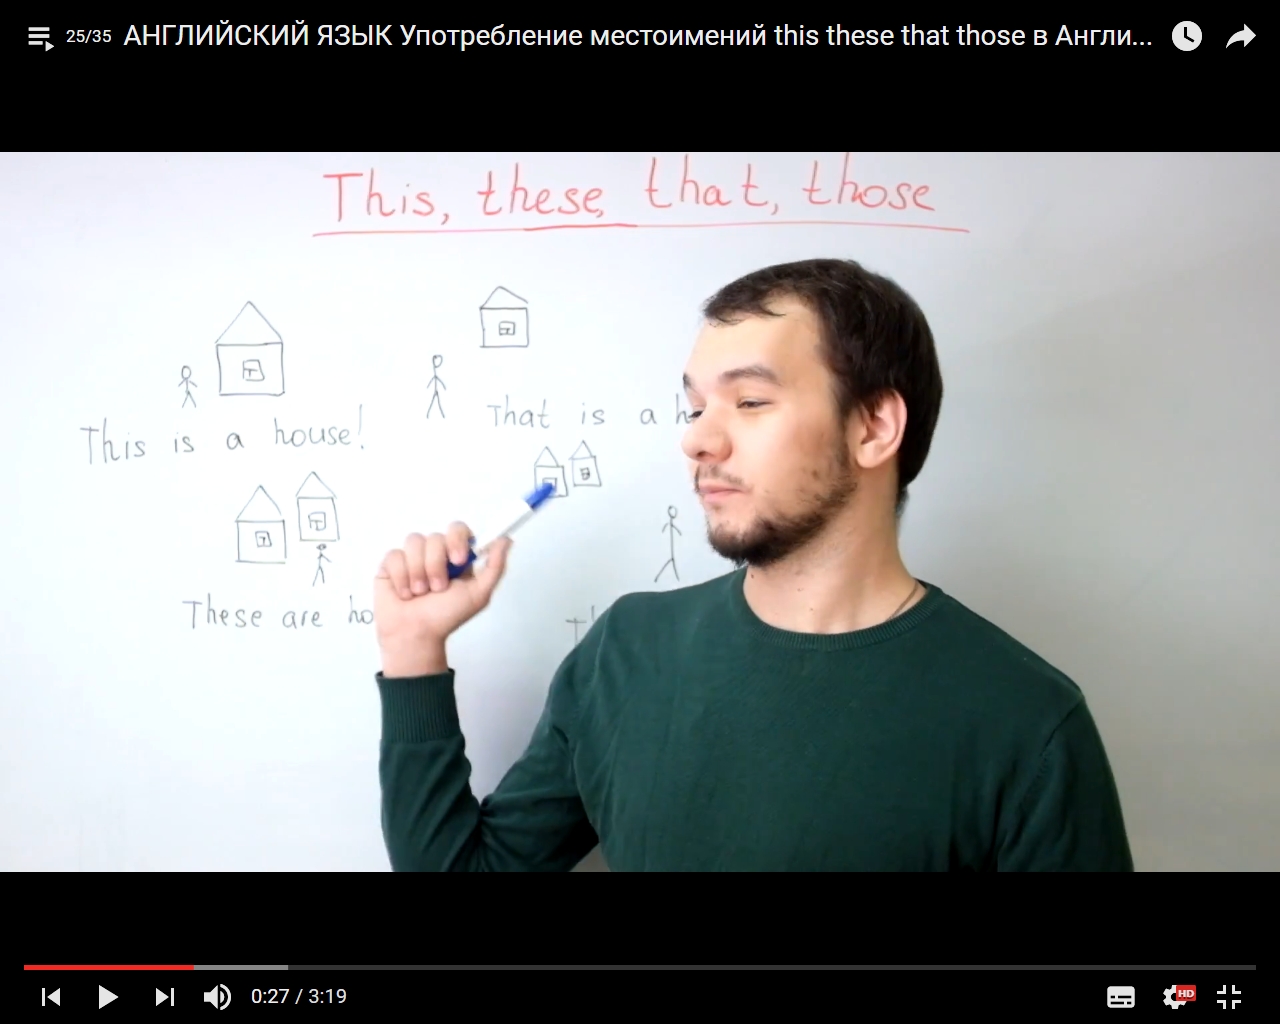 25/35 АНГЛИЙСКИЙ ЯЗЫК Употребление местоимений this these that those в Англи...
This, these, that, those
That is a h
This is a house!
These are ho
0:27 / 3:19
HD